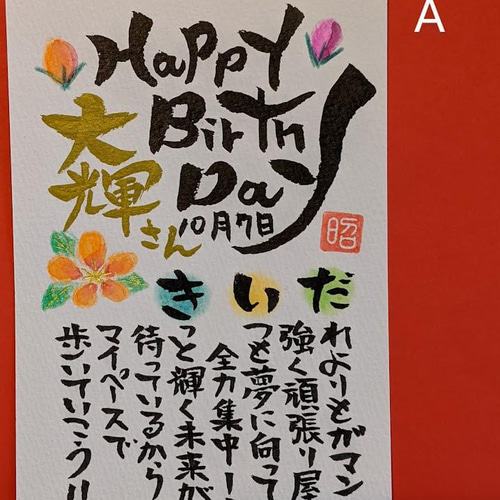 A
Happy
Birth
Day
大輝さん
10月7日
昭
だれよりもガマン
強く頑張り屋
いつも夢に向って
全力集中!
きっと輝く未来が
待っているから
マイペースで
歩いていこう!!